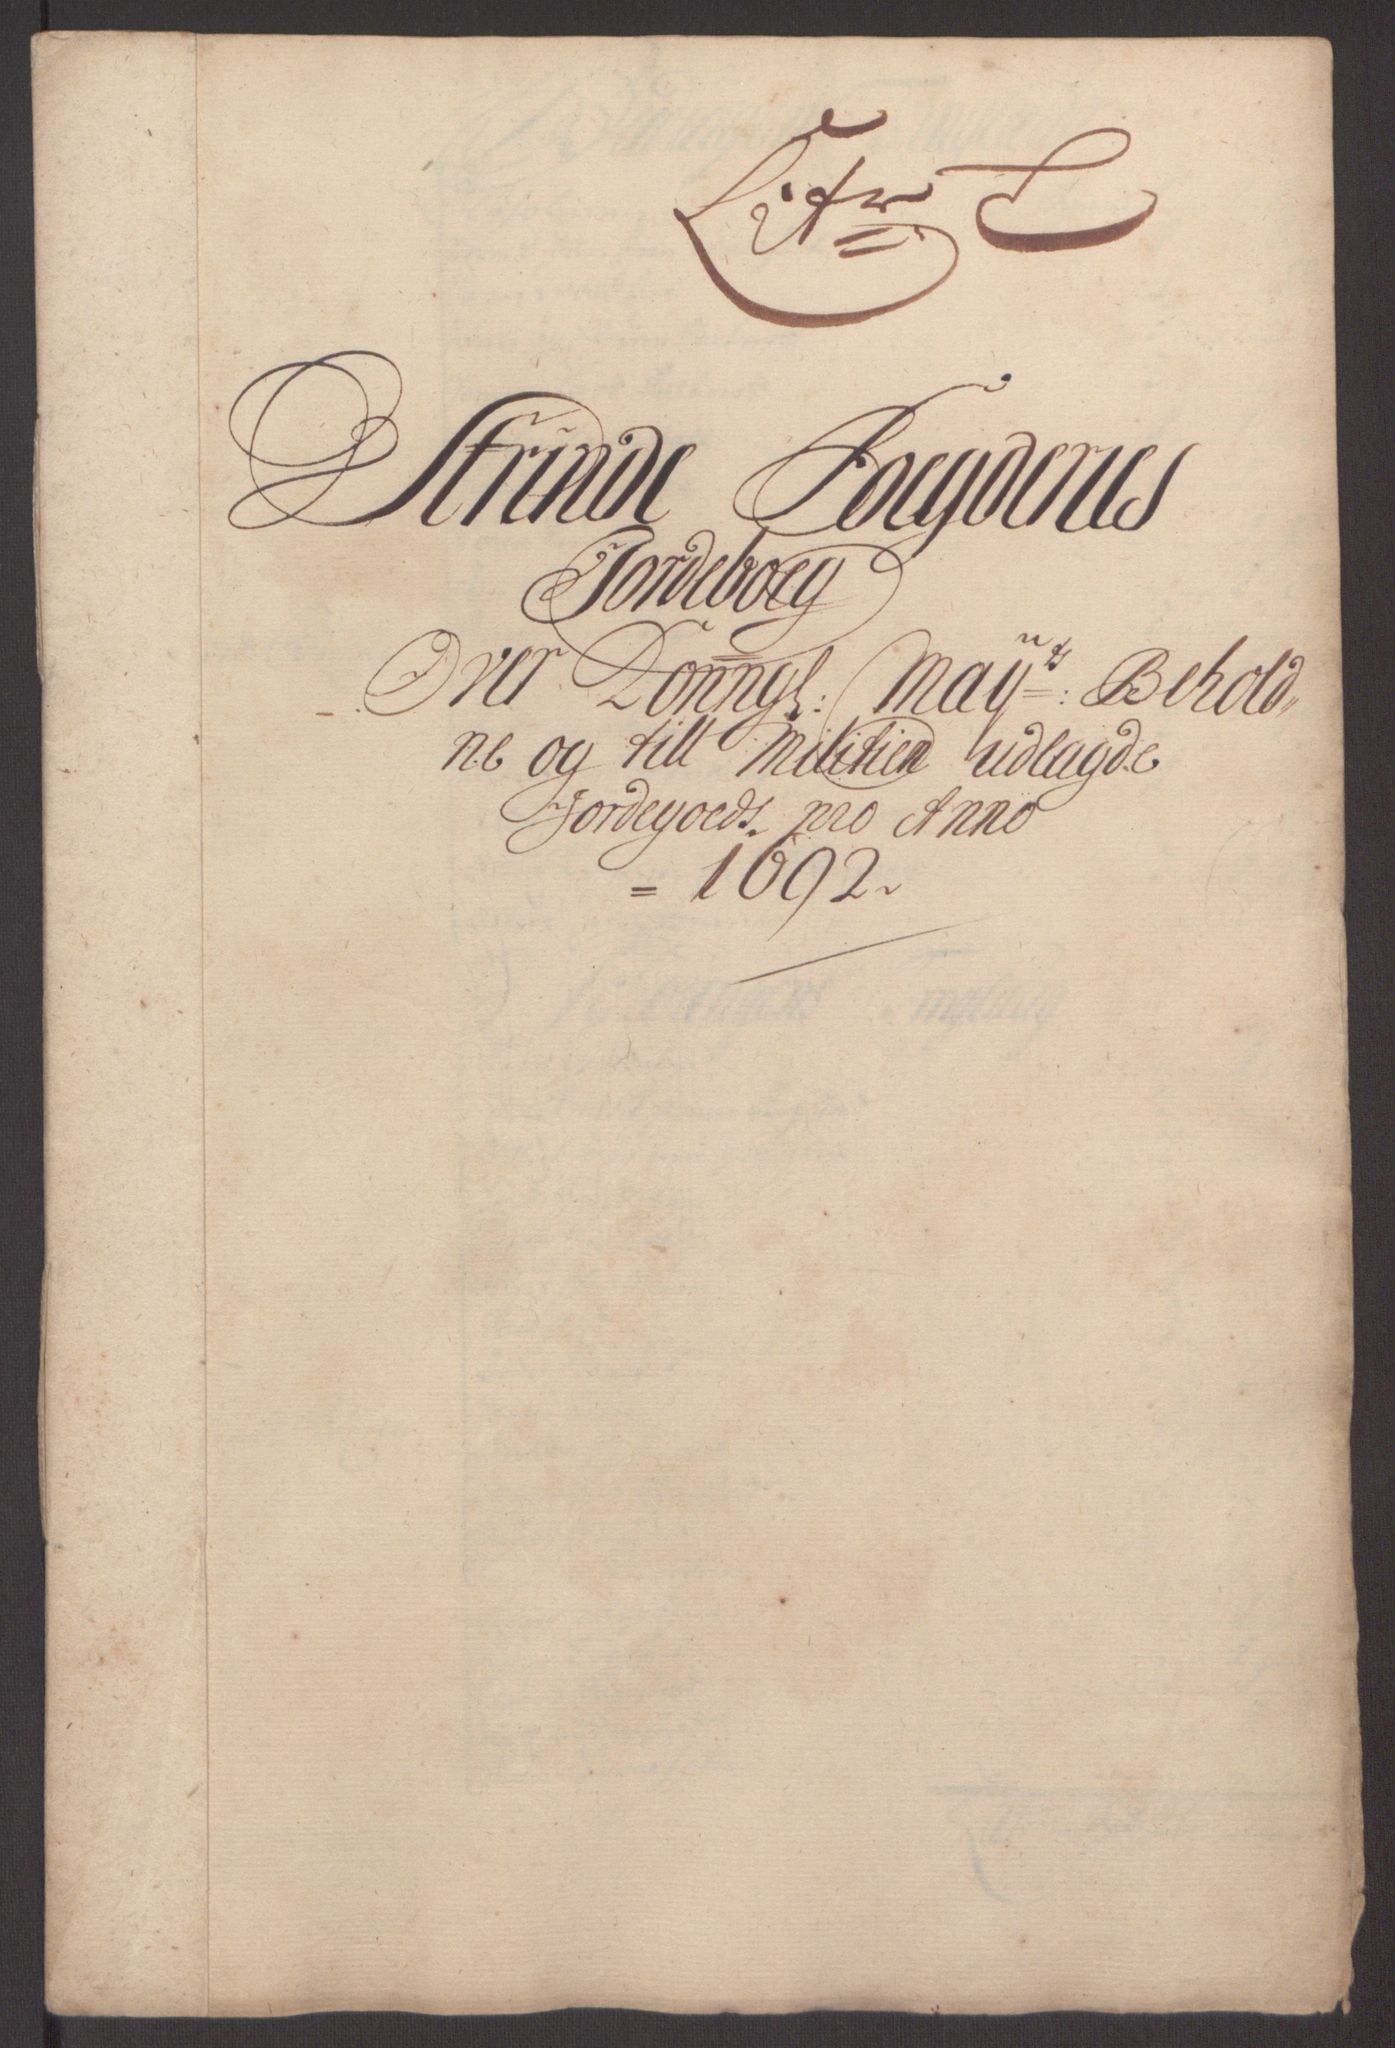 Litr: C
Strinde Foegderies
Jordeboeg
Over Konngl: May:ts Behold-
ne og till Militien udlagde
Jordegoeds pro Anno
= 1692